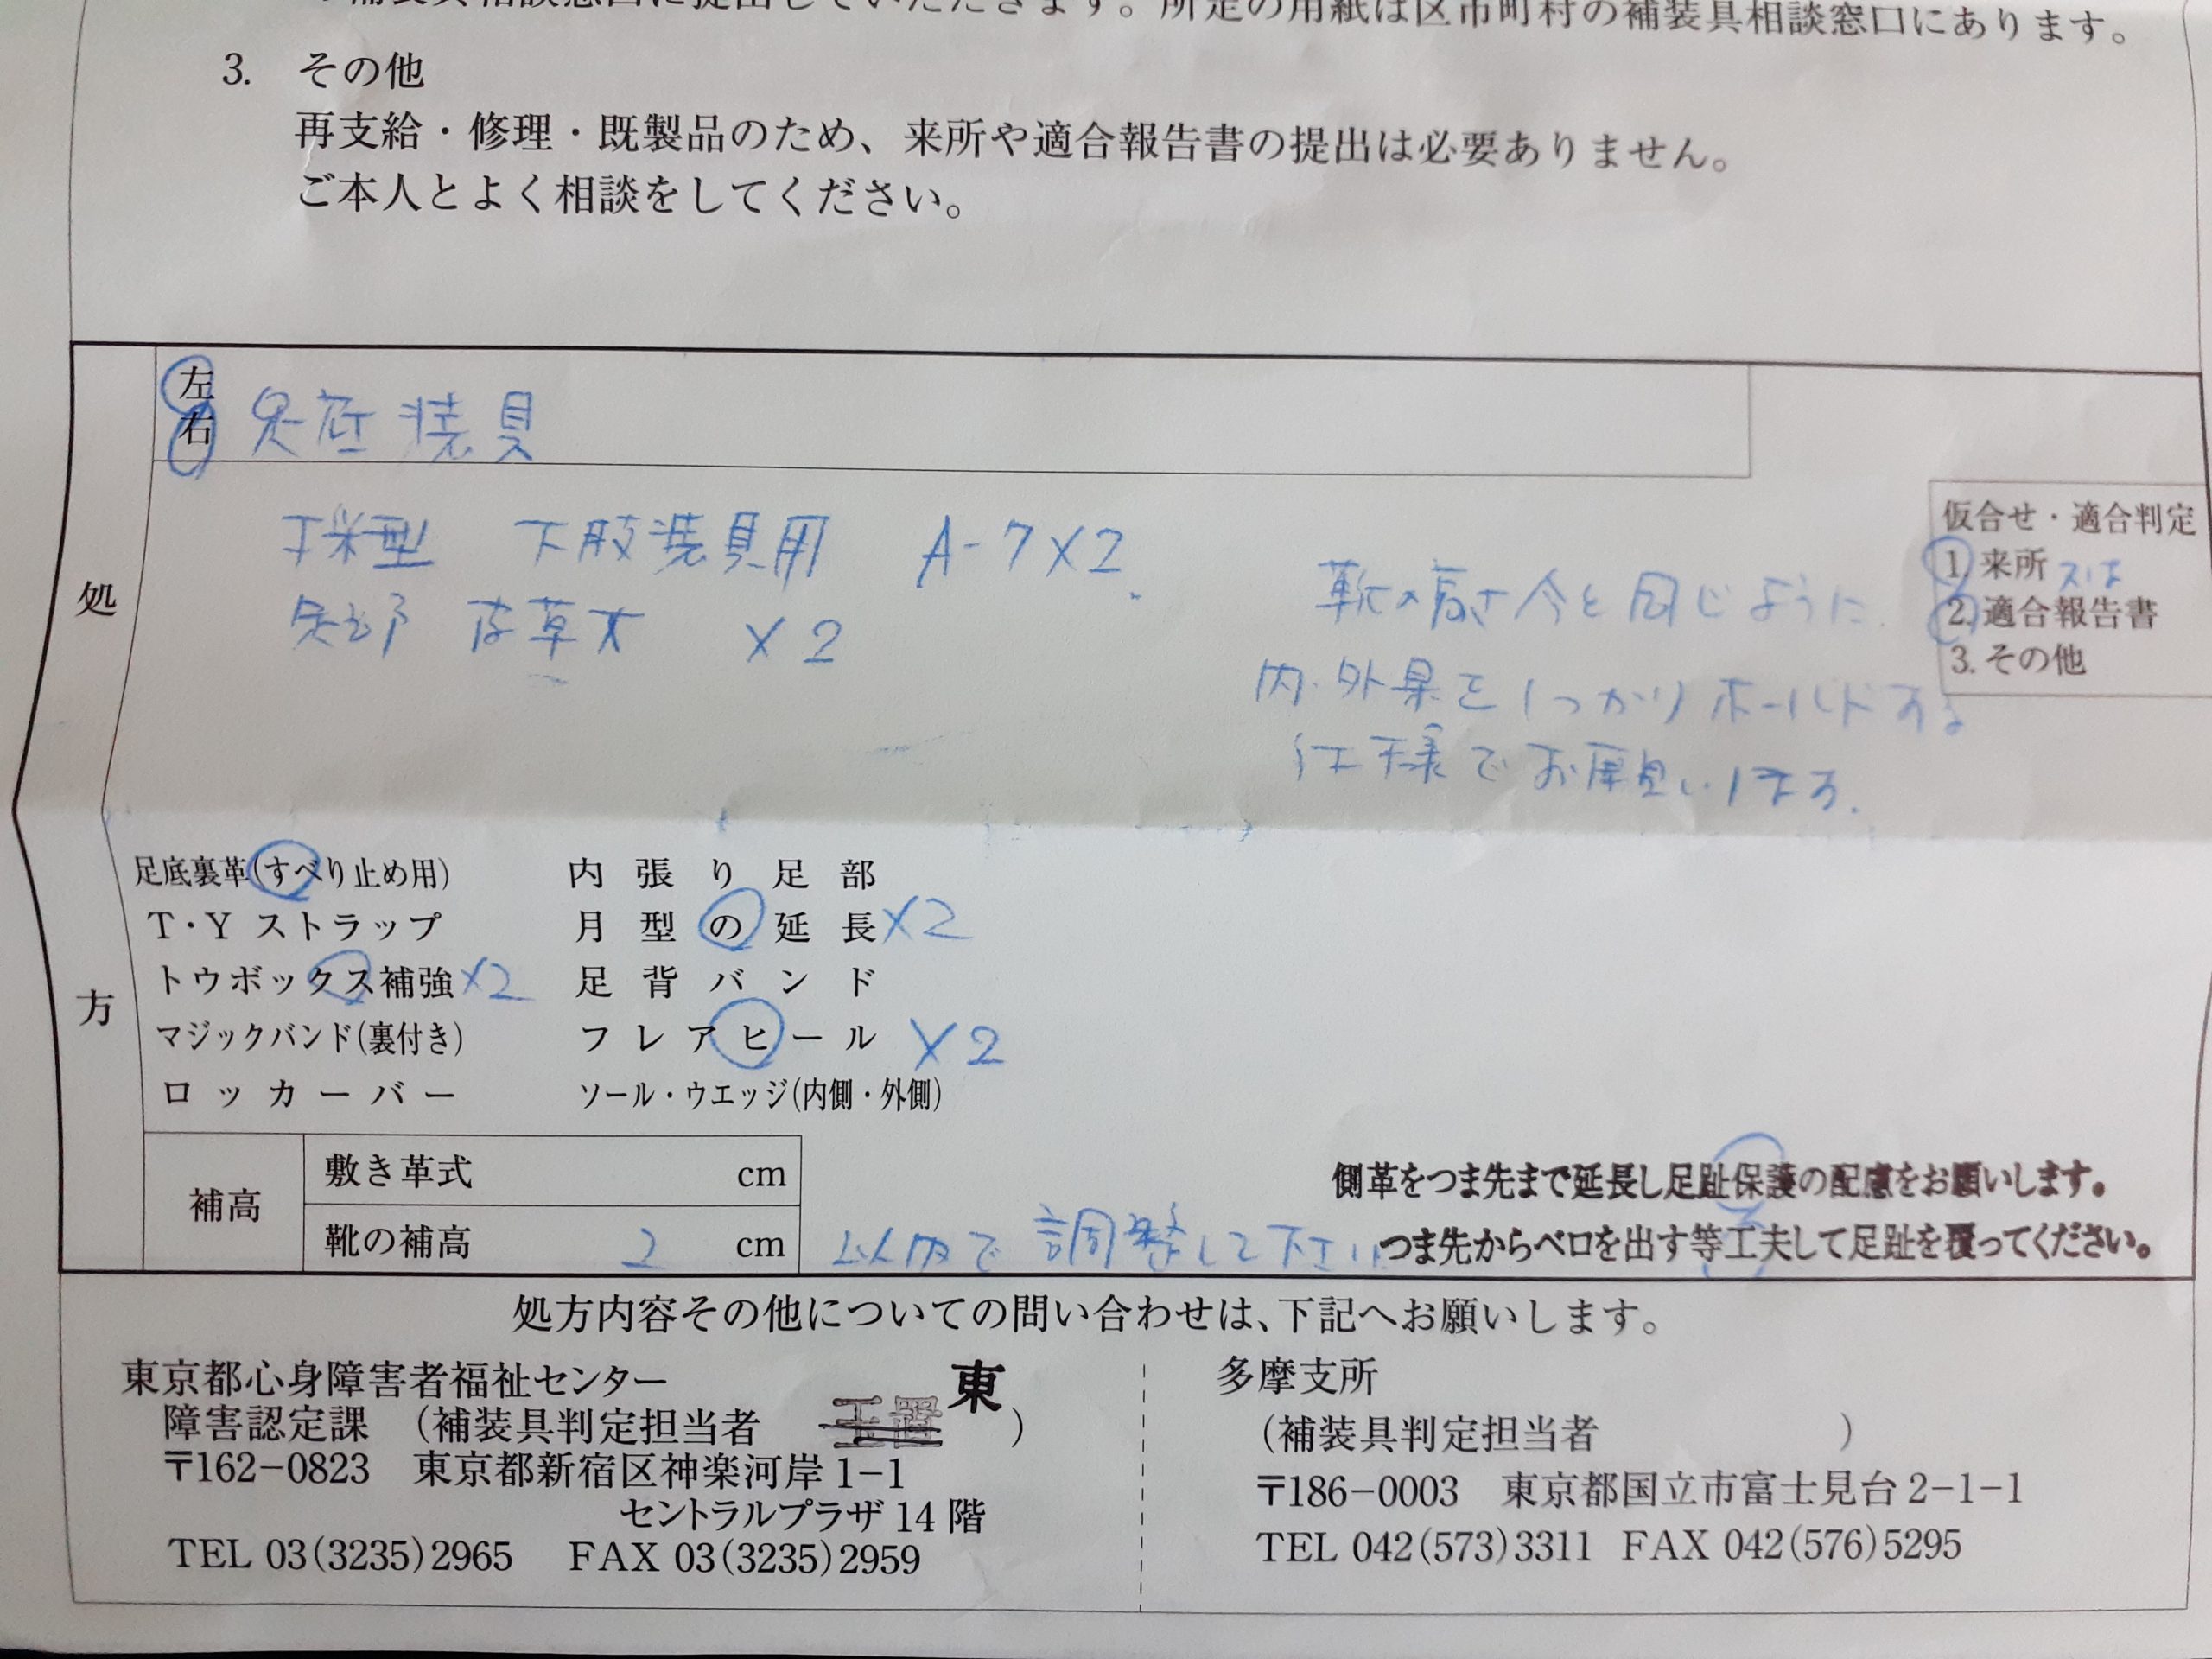 の補装具相談窓口に提出していただきます。所定の用紙は区市町村の補装具相談窓口にあります。
3. その他
再支給・修理・既製品のため、来所や適合報告書の提出は必要ありません。
ご本人とよく相談をしてください。
処方
左
右
足底装具
採型 下肢装具用 A-7×2
足部 皮革大 ×2
靴の高さ今と同じように
内・外果をしっかりホールドする
仕様でお願いします。
仮合せ・適合判定
1. 来所 又は
2. 適合報告書
3. その他
足底裏革(すべり止め用) 内張り足部
T・Yストラップ 月型の延長×2
トウボックス補強×2 足背バンド
マジックバンド(裏付き) フレアヒール ×2
ロッカーバー ソール・ウエッジ(内側・外側)
補高
敷き革式 cm
靴の補高 2 cm 以内で調整して下さい
側革をつま先まで延長し足趾保護の配慮をお願いします。
つま先からベロを出す等工夫して足趾を覆ってください。
処方内容その他についての問い合わせは、下記へお願いします。
東京都心身障害者福祉センター
障害認定課 (補装具判定担当者 東)
〒162-0823 東京都新宿区神楽河岸1-1
セントラルプラザ14階
TEL 03(3235)2965 FAX 03(3235)2959
多摩支所
(補装具判定担当者 )
〒186-0003 東京都国立市富士見台2-1-1
TEL 042(573)3311 FAX 042(576)5295